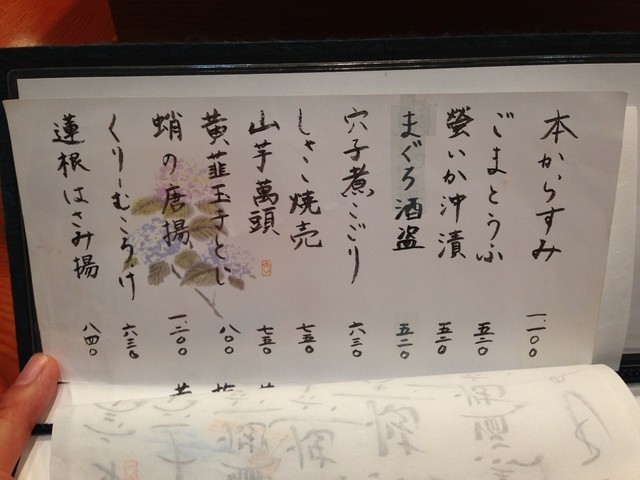 本からすみ 一、一〇〇
ごまとうふ 五二〇
螢いか沖漬 五二〇
まぐろ酒盗 五二〇
穴子煮こごり 六三〇
しゃこ焼売 七五〇
山芋萬頭 七五〇
黄韮玉子とじ 八〇〇
蛸の唐揚 一、二〇〇
くりーむころっけ 六三〇
蓮根はさみ揚 八四〇